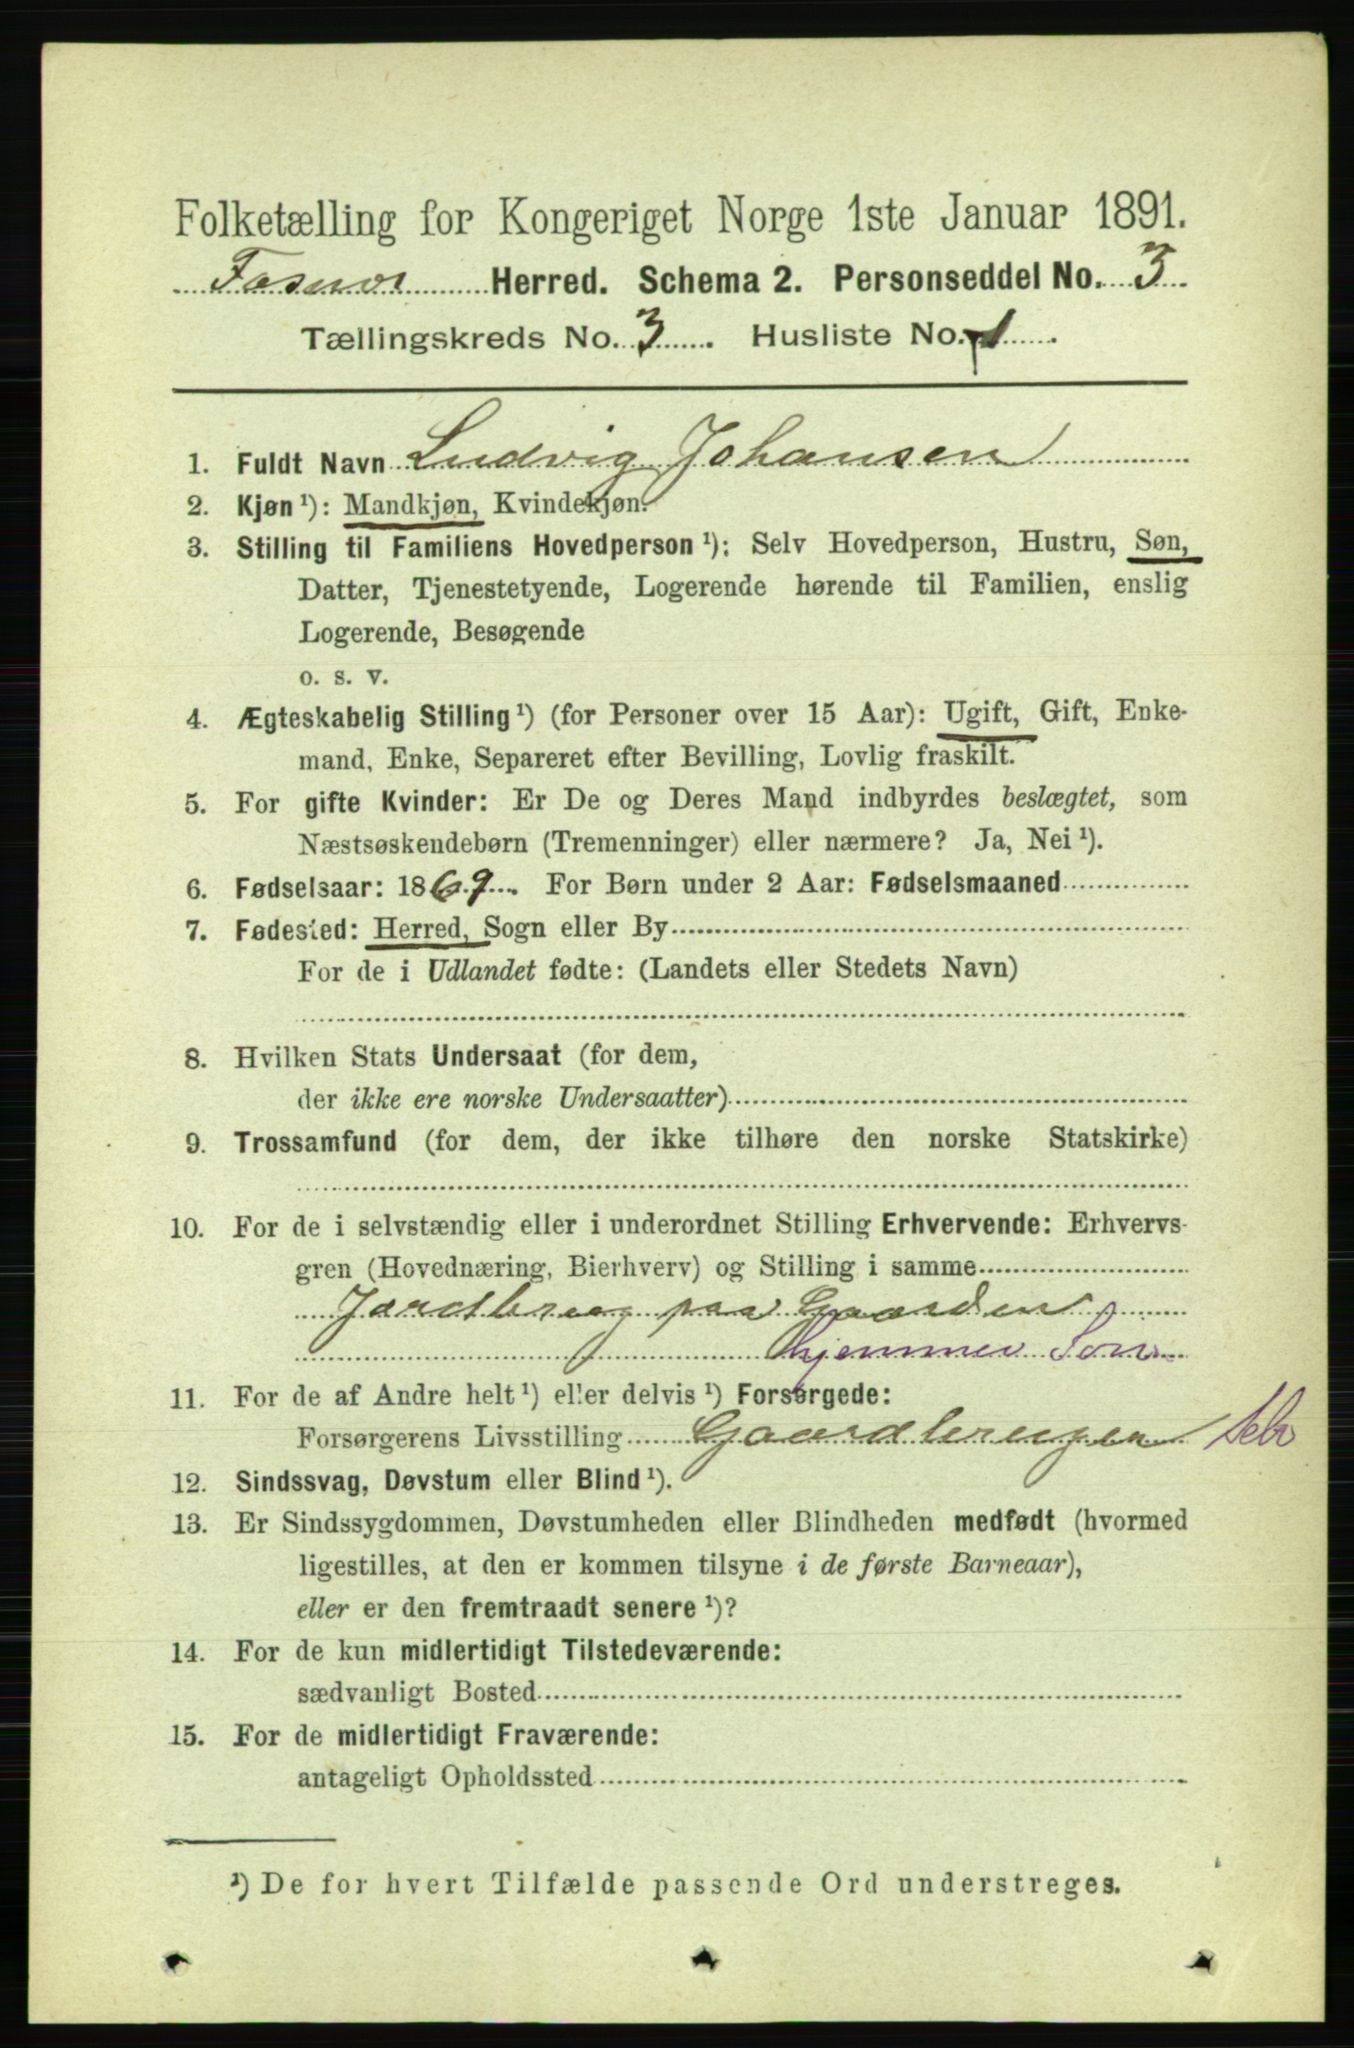 Folketælling for Kongeriget Norge 1ste Januar 1891.
Fosnes Herred. Schema 2. Personseddel No. 3
Tællingskreds No. 3. Husliste No. 1.
1. Fuldt Navn Ludvig Johansen
2. Kjøn ¹): Mandkjøn, Kvindekjøn.
3. Stilling til Familiens Hovedperson ¹): Selv Hovedperson, Hustru, Søn,
Datter, Tjenestetyende, Logerende hørende til Familien, enslig
Logerende, Besøgende
o. s. v.
4. Ægteskabelig Stilling ¹) (for Personer over 15 Aar): Ugift, Gift, Enke-
mand, Enke, Separeret efter Bevilling, Lovlig fraskilt.
5. For gifte Kvinder: Er De og Deres Mand indbyrdes beslægtet, som
Næstsøskendebørn (Tremenninger) eller nærmere? Ja, Nei ¹).
6. Fødselsaar: 1869. For Børn under 2 Aar: Fødselsmaaned
7. Fødested: Herred, Sogn eller By
For de i Udlandet fødte: (Landets eller Stedets Navn)
8. Hvilken Stats Undersaat (for dem,
der ikke ere norske Undersaatter)
9. Trossamfund (for dem, der ikke tilhøre den norske Statskirke)
10. For de i selvstændig eller i underordnet Stilling Erhvervende: Erhvervs-
gren (Hovednæring, Bierhverv) og Stilling i samme
Jordbrug paa Gaarden
hjemmev Søn
11. For de af Andre helt ¹) eller delvis ¹) Forsørgede:
Forsørgerens Livsstilling Gaardbruger Selv
12. Sindssvag, Døvstum eller Blind ¹).
13. Er Sindssygdommen, Døvstumheden eller Blindheden medfødt (hvormed
ligestilles, at den er kommen tilsyne i de første Barneaar),
eller er den fremtraadt senere ¹)?
14. For de kun midlertidigt Tilstedeværende:
sædvanligt Bosted
15. For de midlertidigt Fraværende:
antageligt Opholdssted
¹) De for hvert Tilfælde passende Ord understreges.